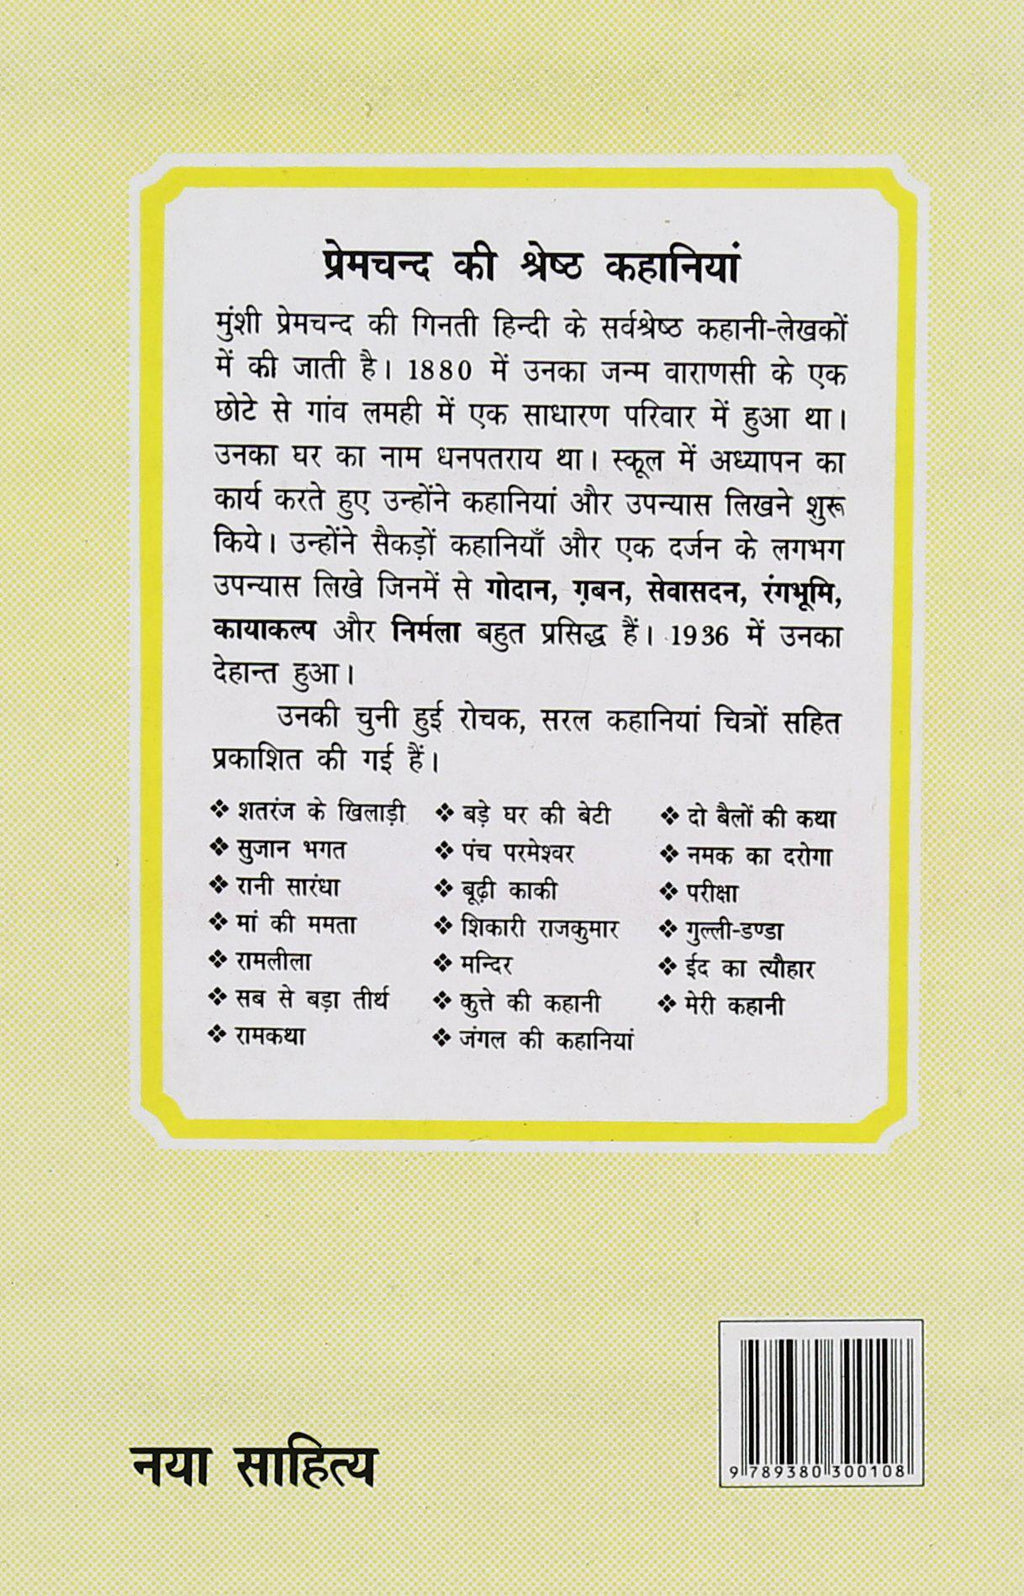 प्रेमचन्द की श्रेष्ठ कहानियां
मुंशी प्रेमचन्द की गिनती हिन्दी के सर्वश्रेष्ठ कहानी-लेखकों
में की जाती है। 1880 में उनका जन्म वाराणसी के एक
छोटे से गांव लमही में एक साधारण परिवार में हुआ था।
उनका घर का नाम धनपतराय था। स्कूल में अध्यापन का
कार्य करते हुए उन्होंने कहानियां और उपन्यास लिखने शुरू
किये। उन्होंने सैकड़ों कहानियाँ और एक दर्जन के लगभग
उपन्यास लिखे जिनमें से गोदान, ग़बन, सेवासदन, रंगभूमि,
कायाकल्प और निर्मला बहुत प्रसिद्ध हैं। 1936 में उनका
देहान्त हुआ।
उनकी चुनी हुई रोचक, सरल कहानियां चित्रों सहित
प्रकाशित की गई हैं।
❖ शतरंज के खिलाड़ी ❖ बड़े घर की बेटी ❖ दो बैलों की कथा
❖ सुजान भगत ❖ पंच परमेश्वर ❖ नमक का दरोगा
❖ रानी सारंधा ❖ बूढ़ी काकी ❖ परीक्षा
❖ मां की ममता ❖ शिकारी राजकुमार ❖ गुल्ली-डण्डा
❖ रामलीला ❖ मन्दिर ❖ ईद का त्यौहार
❖ सब से बड़ा तीर्थ ❖ कुत्ते की कहानी ❖ मेरी कहानी
❖ रामकथा ❖ जंगल की कहानियां
नया साहित्य
9 789380 300108